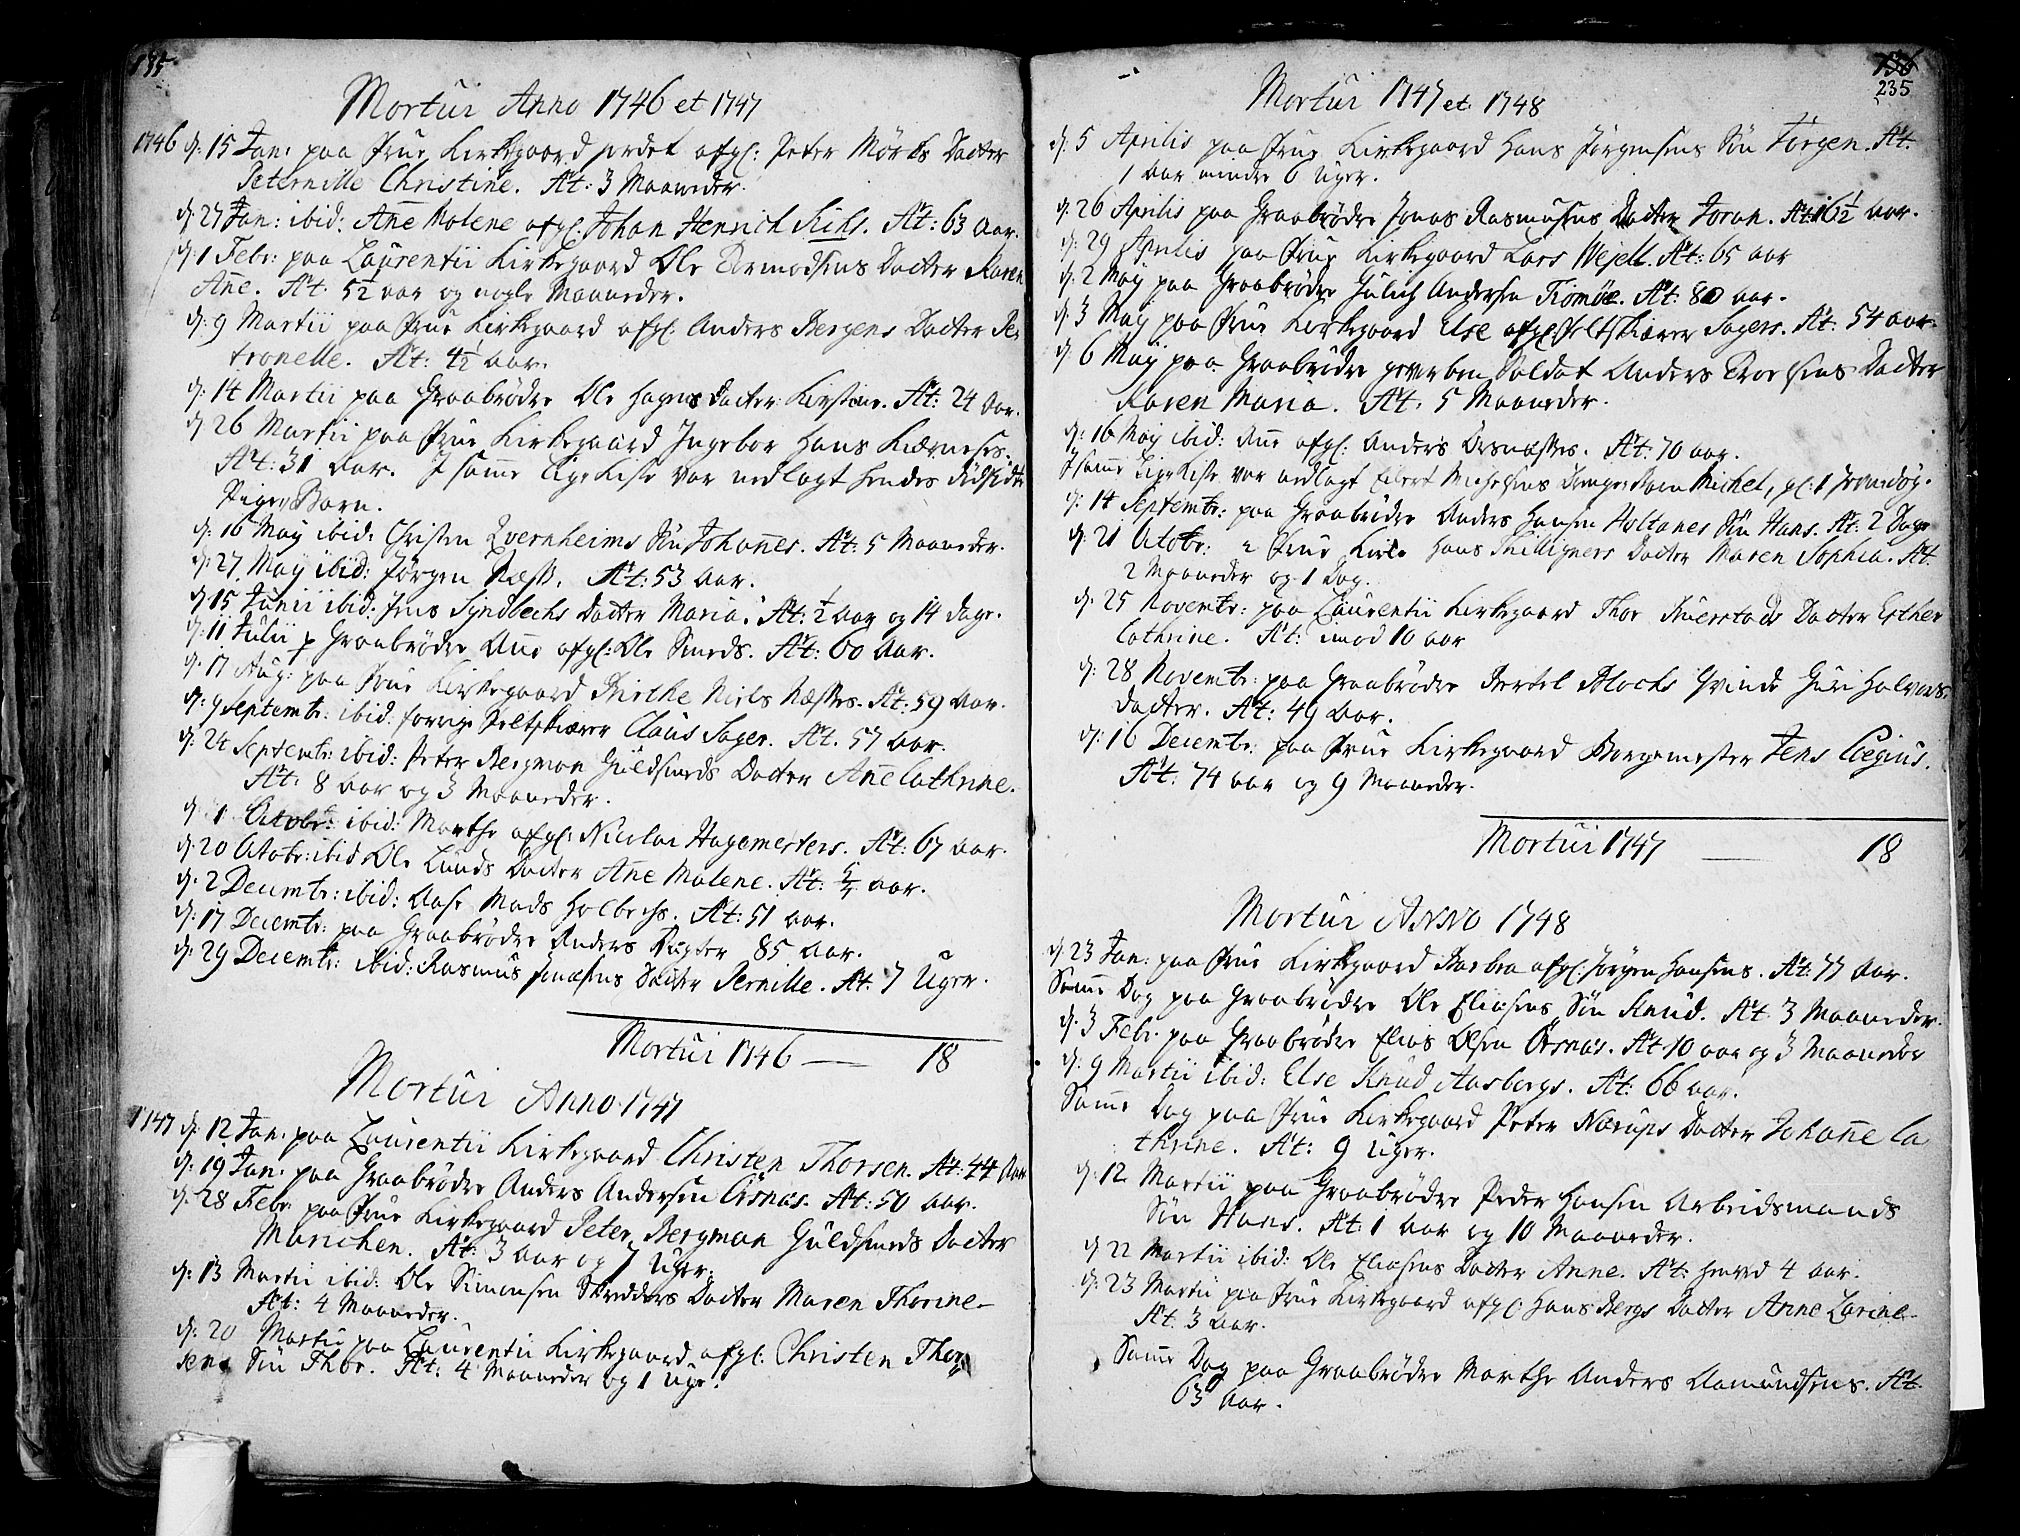 135
Mortui Anno 1746 et 1747
1746 d: 15 Jan: paa Frue Kirkegaard jordet afgl: Peter Mörks Dacter
Peternille Christine. Æt: 3 Maaneder.
d: 27 Jan: ibid: Añe Molene afgl: Johan Henrich Kihs. Æt: 63 aar.
d: 1 Febr: paa Laurentii Kirkegaard Ole Dacter Karen
Añe. Æt. 5½ aar og nogle Maaneder.
d: 9 Martii paa Frue Kirkegaard afgl: Anders Bergens Dacter Pe-
tronelle. Æt: 4½ aar.
d: 14 Martii paa Graabrødre Ole Hagens Dacter Kirstine. Æt: 24 Aar.
d 26 Martii paa Frue Kirkegaard Ingebor Hans
Æt: 31 Aar. I samme Ligkiste var nedlagt hendes dödfödte
Piger Barn.
d: 16 May ibid: Christen Qvernheims Sön Johannes. Æt: 5 Maaneder.
d: 27 May ibid: Jörgen Næss. Æt: 53 Aar.
d 15 Junii ibid: Jens Syndbechs Dacter Maria. Æt: ½ Aar og 14 Dage.
d: 11 Julii p Graabrødre Ane afgl: Ole Smeds. Æt: 60 Aar.
d. 17 Aug: paa Frue Kirkegaard Birthe Niels Næsses. Æt: 59 Aar.
d: 9 Septembr: ibid: forrige Feltskiærer Claus Sager. Æt. 57 Aar.
d: 24 Septembr: ibid: Peter Bergman Guldsmeds Dacter Añe Cathrine.
Æt: 8 Aar og 3 Maaneder.
d: 1 Octobr: ibid: Marthe afgl: Nicolai Hagemesters. Æt: 67 aar.
d: 20 Octobr: ibid Ole Lunds Dacter Añe Malene. Æt: 5/4 aar.
d: 2 Decembr: ibid: Aase Mads Holbechs. Æt: 51 aar.
d: 17 Decembr: paa Graabrødre Anders 85 Aar.
d: 29 Decembr: ibid: Rasmus Jonasens Dacter Pernille. Æt. 7 Uger.
Mortui 1746 — 18
Mortui Anno 1747
1747 d: 12 Jan: paa Laurentii Kirkegaard Christen Thorsen. Æt: 44 Aar
d: 19 Jan: paa Graabrødre Anders Andersen Örsnæs. Æt: 50 aar.
d: 28 Febr: paa Frue Kirkegaard Peter Bergman Guldsmeds Dacter
Marichen. Æt: 3 Aar og 7 Uger.
d: 13 Martii ibid: Ole Simonsen Skredders Dacter Maren Thorine
Æt: 4 Maaneder.
d: 20 Martii paa Laurentii Kirkegaard afgl: Christen Thor
sens Sön Thor. Æt: 4 Maaneder og 1 Uge.
136
235
Mortui 1747 et 1748
d: 5 Aprilis paa Frue Kirkegaard Hans Jörgensens Sön Jörgen. Æt.
1 Aar minder 6 Uger.
d: 26 Aprilis paa Graabrødre Jonas Rasmusens Dacter Joran. Æt: 16½ Aar.
d: 29 Aprilis paa Frue Kirkegaard Lars Wejell. Æt: 65 aar
d: 2 May paa Graabrødre Gulich Andersen Tromöe. Æt: 80 aar.
d: 3 May paa Frue Kirkegaard Else afgl: Feltskiærer Sagers. Æt. 54 aar.
d 6 May paa Graabrødre geverben Soldat Anders Dacter
Karen Maria. Æt. 5 Maaneder.
d: 16 May ibid: Ane afgl: Anders Örsnæsses. Æt: 70 Aar.
I samme Ligkiste var nedlagt Eilert Michelsens Drenge Barn Michel, gl: 1 Dag.
d: 14 Septembr: paa Graabrødre Anders Hansen Holtanes Sön Hans. Æt: 2 Dage
d: 21 Octobr: Frue Kirk: Hans Dacter Maren Sophia. Æt.
2 Maaneder og 1 Dag.
d: 25 Novembr: paa Laurentii Kirkegaard Thor Dacter Esther
Cathrine. Æt: imod 10 Aar
d: 28 Novembr: paa Graabrødre Bertel Blochs Qvinde Guri Halvors
Dacter. Æt: 49 Aar.
d: 16 Decembr: paa Frue Kirkegaard Borgemester Jens Coegius.
Æt. 74 aar og 9 Maaneder.
Mortui 1747 — 18
Mortui ANNO 1748
d: 23 Jan: paa Frue Kirkegaard Barbra afgl: Jörgen Hansens. Æt: 77 Aar.
Samme Dag paa Graabrødre Ole Eliasens Sön Knud. Æt. 3 Maaneder.
d: 3 Febr: paa Graabrødre Elias Olsen Örsnæs. Æt. 10 aar og 3 Maaneder
d: 9 Martii ibid: Else Knud Aasbergs. Æt: 66 aar.
Samme Dag paa Frue Kirkegaard Peter Nærups Dacter Johañe Ca
thrine. Æt: 9 Uger.
d: 12 Martii paa Graabrødre Peder Hansen Arbeidsmands
Sön Hans. Æt: 1 Aar og 10 Maaneder.
d 22 Martii ibid: Ole Eliasens Dacter Anne. Æt: henved 4 aar.
d: 23 Martii paa Frue Kirkegaard afgl: Hans Bergs Dacter Anne Zarine
Æt. 3 Aar.
Samme Dag paa Graabrødre Marthe Anders Aamundsens. Æt.
63 Aar.